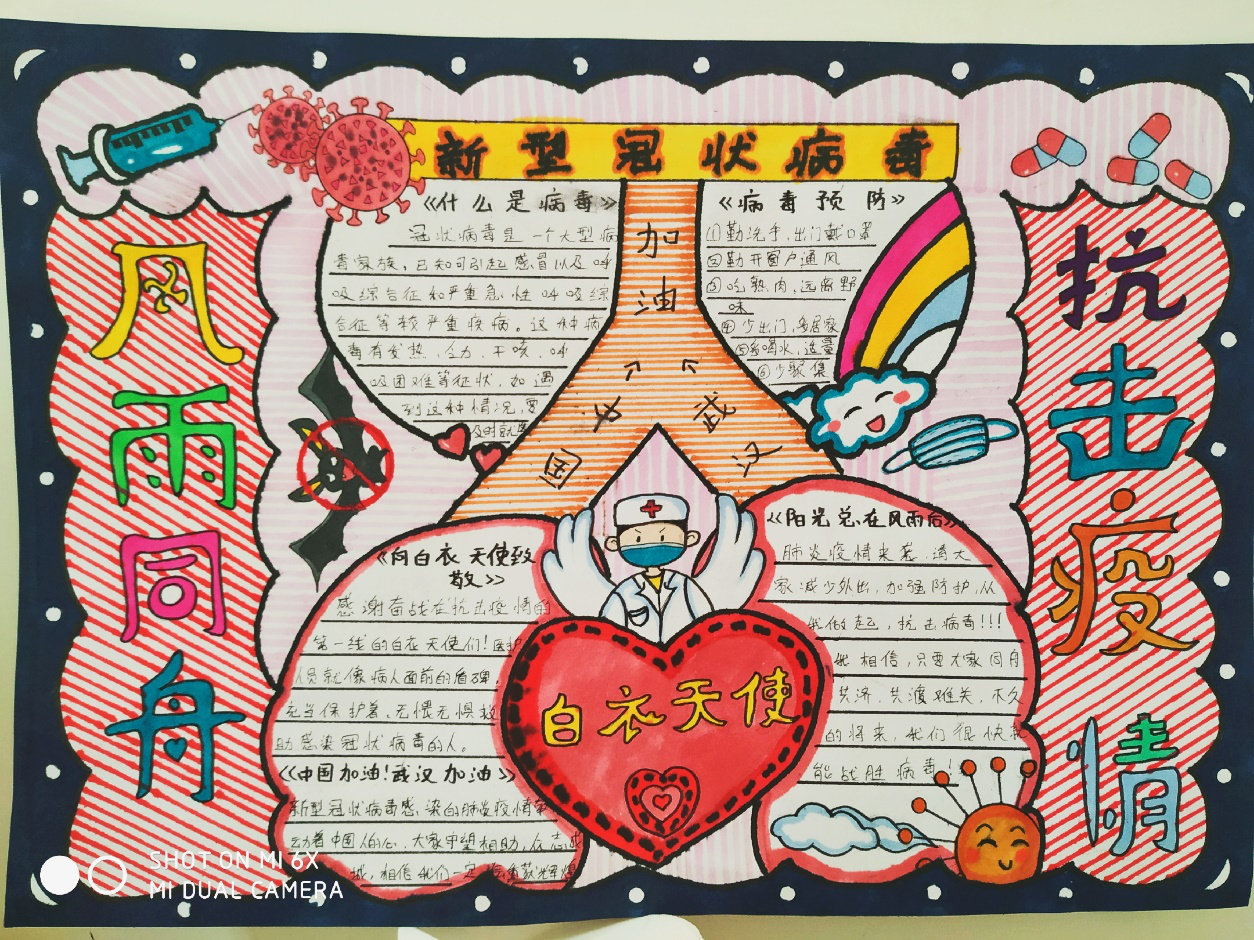 新型冠状病毒
风雨同舟
抗击疫情
加油
中国
武汉
《什么是病毒》
冠状病毒是一个大型病
毒家族，已知可引起感冒以及呼
吸综合征和严重急性呼吸综
合征等较严重疾病。这种病
毒有发热、乏力、干咳、呼
吸困难等症状，如遇
到这种情况，要
及时就
《病毒预防》
①勤洗手，出门戴口罩
②勤开窗户通风
③吃熟肉，远离野
味
④少出门，多居家
⑤多喝水，适量
⑥少聚集
《向白衣天使致
敬》
感谢奋战在抗击疫情的
第一线的白衣天使们！医护
人员就像病人面前的盾牌，
充当保护着，无畏无惧救
助感染冠状病毒的人。
《中国加油！武汉加油》
新型冠状病毒感染的肺炎疫情牵
动着中国人的心，大家守望相助，众志成
城，相信我们一定
《阳光总在风雨后》
肺炎疫情来袭，请大
家减少外出，加强防护，从
我做起，抗击病毒！！！
我相信，只要大家同舟
共济，共渡难关，不久
的将来，我们很快就
能战胜病毒！
白衣天使
SHOT ON MI 6X
MI DUAL CAMERA